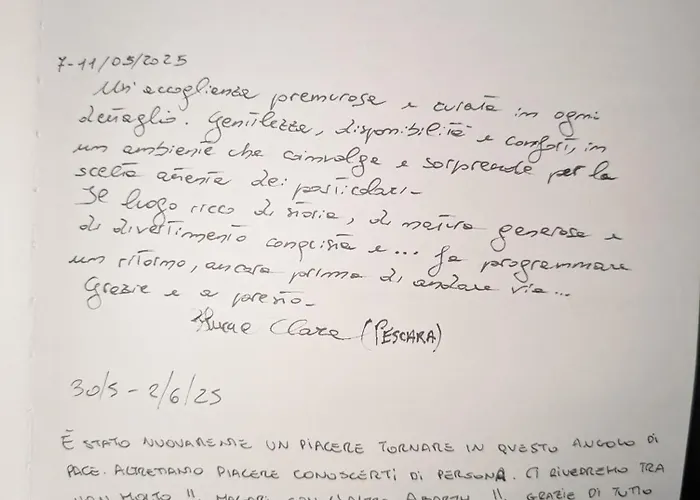 7-11/05/2025
Un'accoglienza premurosa e curata in ogni
dettaglio. Gentilezza, disponibilità e confort, in
un ambiente che coinvolge e sorprende per la
scelta attenta dei particolari.
Il luogo ricco di storia, di natura generosa e
di divertimento conquista e... fa programmare
un ritorno, ancora prima di andare via...
Grazie e a presto.
Clara (PESCARA)
30/5 - 2/6/25
È STATO NUOVAMENTE UN PIACERE TORNARE IN QUESTO ANGOLO DI
PACE. ALTRETTANTO PIACERE CONOSCERTI DI PERSONA. CI RIVEDREMO TRA
NON MOLTO !! MAGARI CON !! GRAZIE DI TUTTO